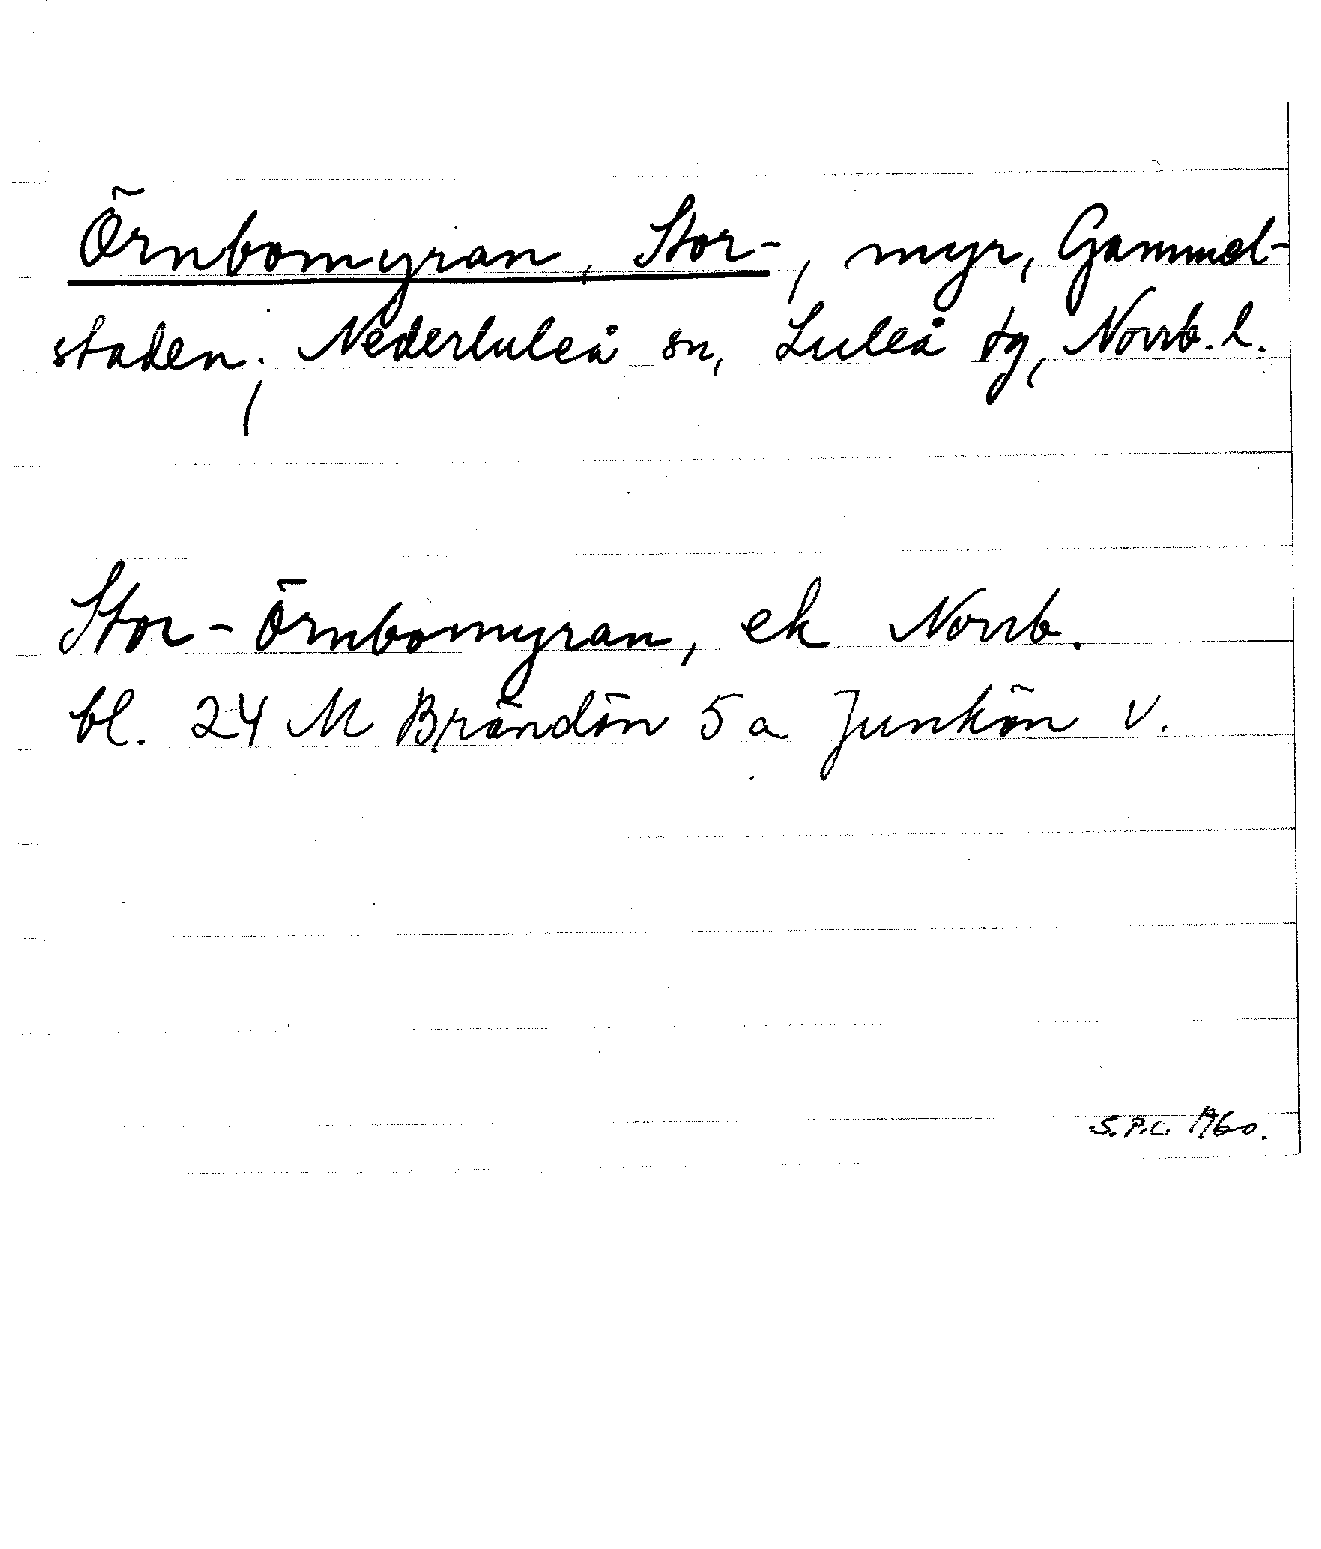 Örnbomyran, Stor-, myr, Gammel-
staden, Nederluleå sn, Luleå tg, Norrb. l.
Stor-Örnbomyran, ek Norrb.
bl. 24 M Brändön 5 a Junkön V.
S.P.C. 1960.